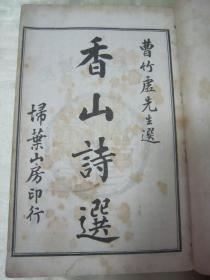 曹竹虛先生選
香山詩選
掃葉山房印行